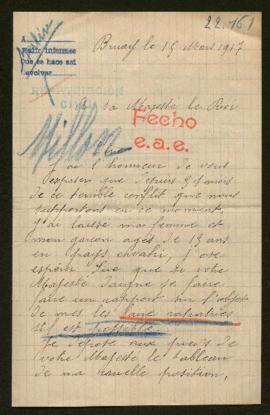 22.161
A
Pedir informes
Que se hace así
devolver
Bruay le 15 Mars 1917
A sa Majesté le Roi
Fecho
e.a.e.
Millon
J'ai l'honneur de vous
exposer que depuis
de ce terrible conflit que nous
supportons en ce moment,
J'ai laissé ma femme et
mon garçon agés de 13 ans
en pays envahi, j'ose
espérer Sire que de votre
Majesté daigne se faire
faire un rapport sur l'objet
de mes les faire rapatriées
s'il est possible.
Je dépose aux pieds de
votre Majesté le tableau
de ma nouvelle position,